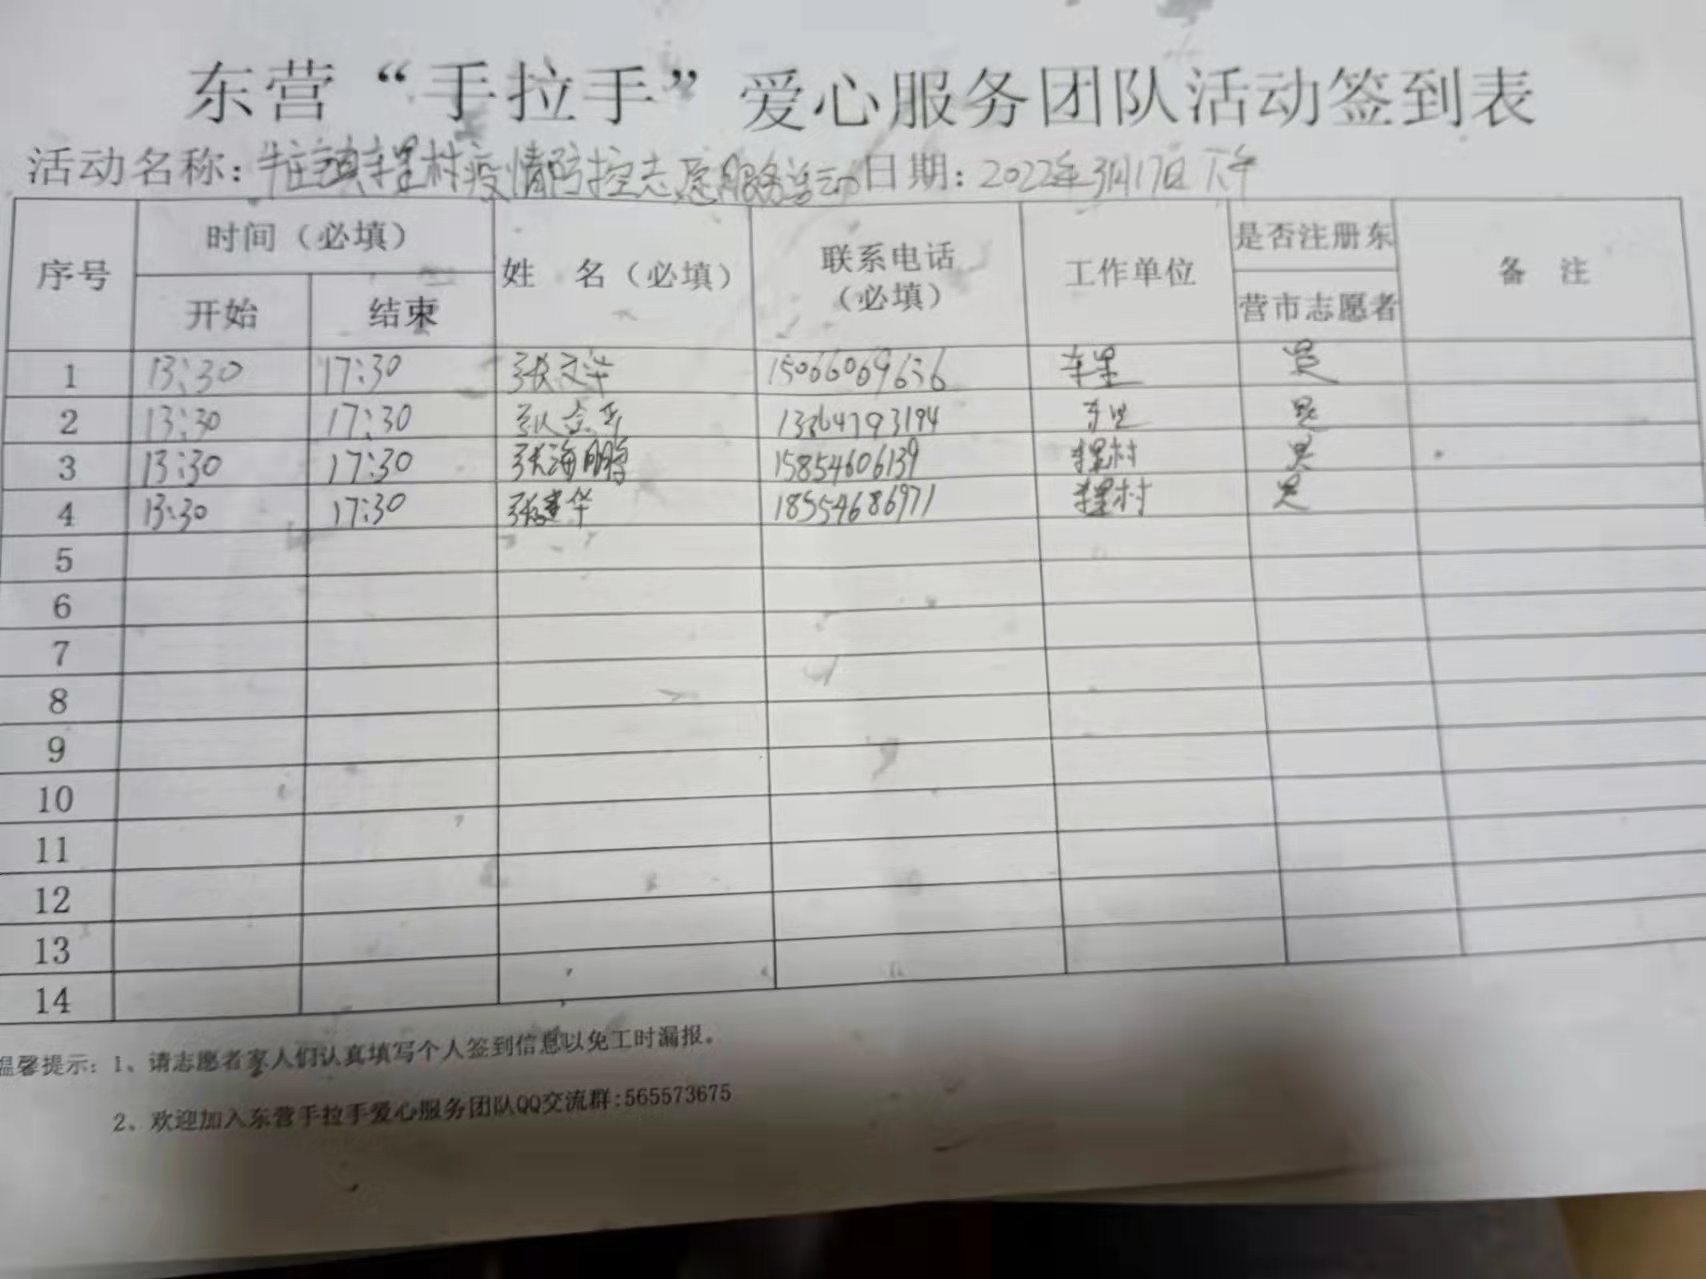 东营“手拉手”爱心服务团队活动签到表
活动名称：牛庄镇 村疫情防控志愿服务活动 日期：2022年3月17日下午
序号 时间（必填） 姓 名（必填） 联系电话（必填） 工作单位 是否注册东营市志愿者 备 注
开始 结束
1 13:30 17:30 张文华 15066069636 是
2 13:30 17:30 是
3 13:30 17:30 张海鹏 15854606139 是
4 13:30 17:30 张建华 18554686971 是
5
6
7
8
9
10
11
12
13
14
温馨提示：1、请志愿者家人们认真填写个人签到信息以免工时漏报。
2、欢迎加入东营手拉手爱心服务团队QQ交流群:565573675